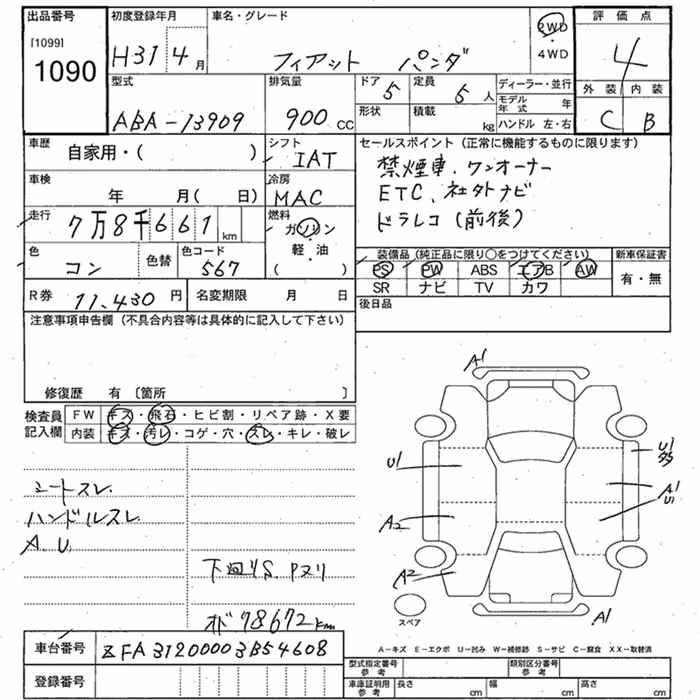 出品番号 初度登録年月 車名・グレード 評価点
[1099]
1090
H31 4月 フィアット パンダ 2WD・4WD 4
型式 排気量 ドア 定員 ディーラー・並行 外装 内装
ABA-13909 900 CC 5 5人 モデル年式 年
形状 積載 kg ハンドル 左・右 C B
車歴 自家用・( ) シフト IAT セールスポイント (正常に機能するものに限ります)
車検 年 月( 日) 冷房 MAC
禁煙車、ワンオーナー
ETC、社外ナビ
ドラレコ(前後)
走行 7万8千661km 燃料 ガソリン 軽・油 ( )
色 コン 色替 色コード 567
装備品 (純正品に限り○をつけてください) 新車保証書
PS PW ABS エアB AW 有・無
SR ナビ TV カワ
R券 11,430円 名変期限 月 日 後日品
注意事項申告欄 (不具合内容等は具体的に記入して下さい)
修復歴 有 〔箇所 〕
検査員記入欄 FW キズ・飛石・ヒビ割・リペア跡・X要
内装 キズ・汚レ・コゲ・穴・スレ・キレ・破レ
A1
U1
U1
A1
U1
A2
A2
A1
シートスレ
ハンドルスレ
A.U.
下廻りS.Pヌリ
オド78672km
スペア
A-キズ E-エクボ U-凹み W-補修跡 S-サビ C-腐食 XX-取替済
車台番号 ZFA31200003B54608
登録番号
型式指定番号 参考 類別区分番号 参考
車庫証明用 参考 長さ cm 幅 cm 高さ cm